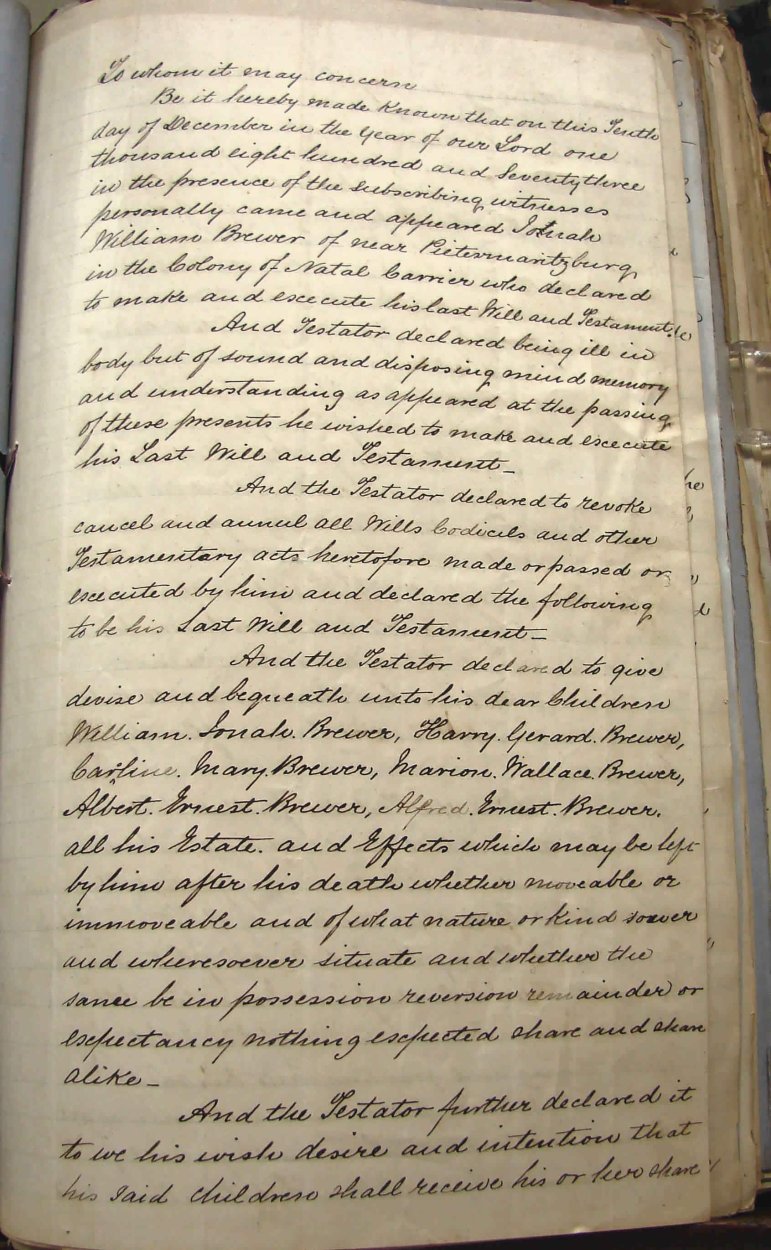 To whom it may concern
Be it hereby made Known that on this Tenth
day of December in the Year of our Lord one
thousand eight hundred and Seventythree
in the presence of the subscribing witnesses
personally came and appeared Jonah
William Brewer of near Pietermaritzburg
in the Colony of Natal Carrier who declared
to make and execute his last Will and Testament.
And Testator declared being ill in
body but of sound and disposing mind memory
and understanding as appeared at the passing
of these presents he wished to make and execute
his Last Will and Testament_
And the Testator declared to revoke
cancel and annul all Wills Codicils and other
Testamentary acts heretofore made or passed or
executed by him and declared the following
to be his Last Will and Testament_
And the Testator declared to give
devise and bequeath unto his dear Children
William. Jonah. Brewer, Harry. Gerard. Brewer,
Caroline. Mary. Brewer, Marion. Wallace. Brewer,
Albert. Ernest. Brewer, Alfred. Ernest. Brewer.
all his Estate. and Effects which may be left
by him after his death whether moveable or
immoveable and of what nature or kind soever
and wheresoever situate and whether the
same be in possession reversion remainder or
expectancy nothing expected share and share
alike_
And the Testator further declared it
to be his wish desire and intention that
his said children shall receive his or her share